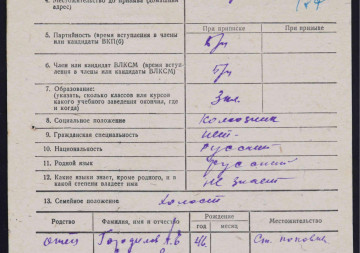 4. Местожительство до призыва (домашний
адрес)
При приписке
При призыве
5. Партийность (время вступления в члены
или кандидаты ВКП(б)
6. Член или кандидат ВЛКСМ (время вступ-
ления в члены или кандидаты ВЛКСМ)
7. Образование:
(указать, сколько классов или курсов
какого учебного заведения окончил, где
и когда)
8. Социальное положение
колхозник
9. Гражданская специальность
нет
10. Национальность
русский
11. Родной язык
русский
12. Какие языки знает, кроме родного, и в
какой степени владеет ими
не знает
13. Семейное положение
холост
Родство
Фамилия, имя и отчество
Рождение
год
месяц
Местожительство
отец